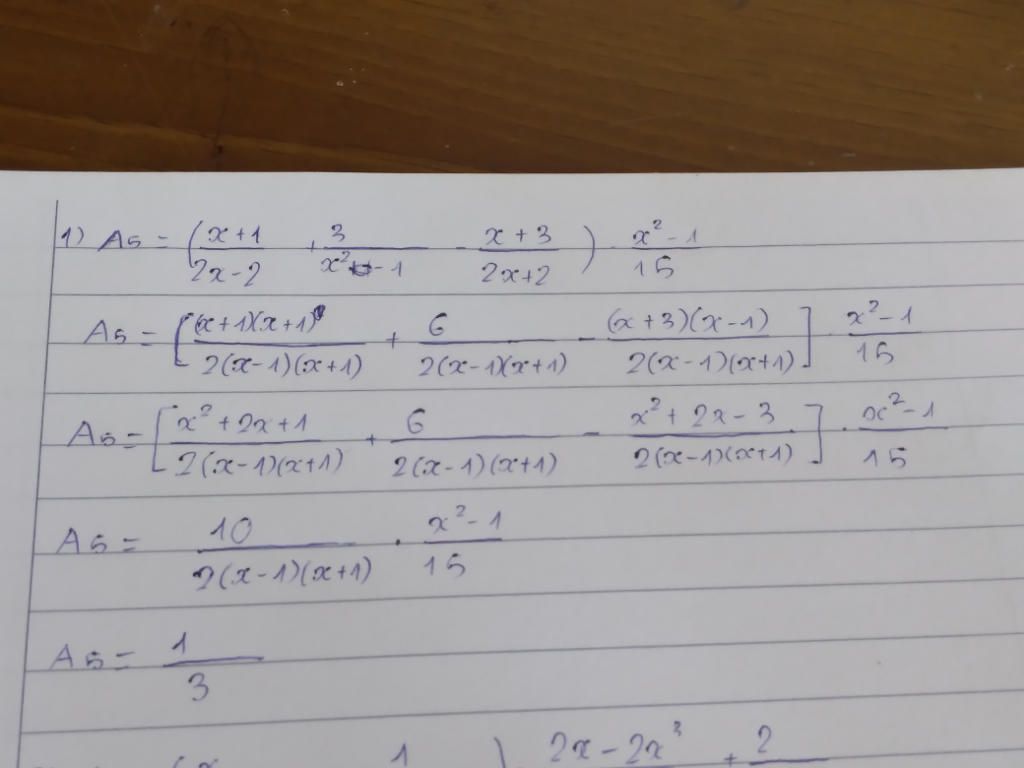 1) A5 = ( (x+1)/(2x-2) + 3/(x²-1) - (x+3)/(2x+2) ) · (x²-1)/15
A5 = [ (x+1)(x+1)/2(x-1)(x+1) + 6/2(x-1)(x+1) - (x+3)(x-1)/2(x-1)(x+1) ] · (x²-1)/15
A5 = [ (x²+2x+1)/2(x-1)(x+1) + 6/2(x-1)(x+1) - (x²+2x-3)/2(x-1)(x+1) ] · (x²-1)/15
A5 = 10/2(x-1)(x+1) · (x²-1)/15
A5 = 1/3
(x 1 ) 2x-2x³ + 2